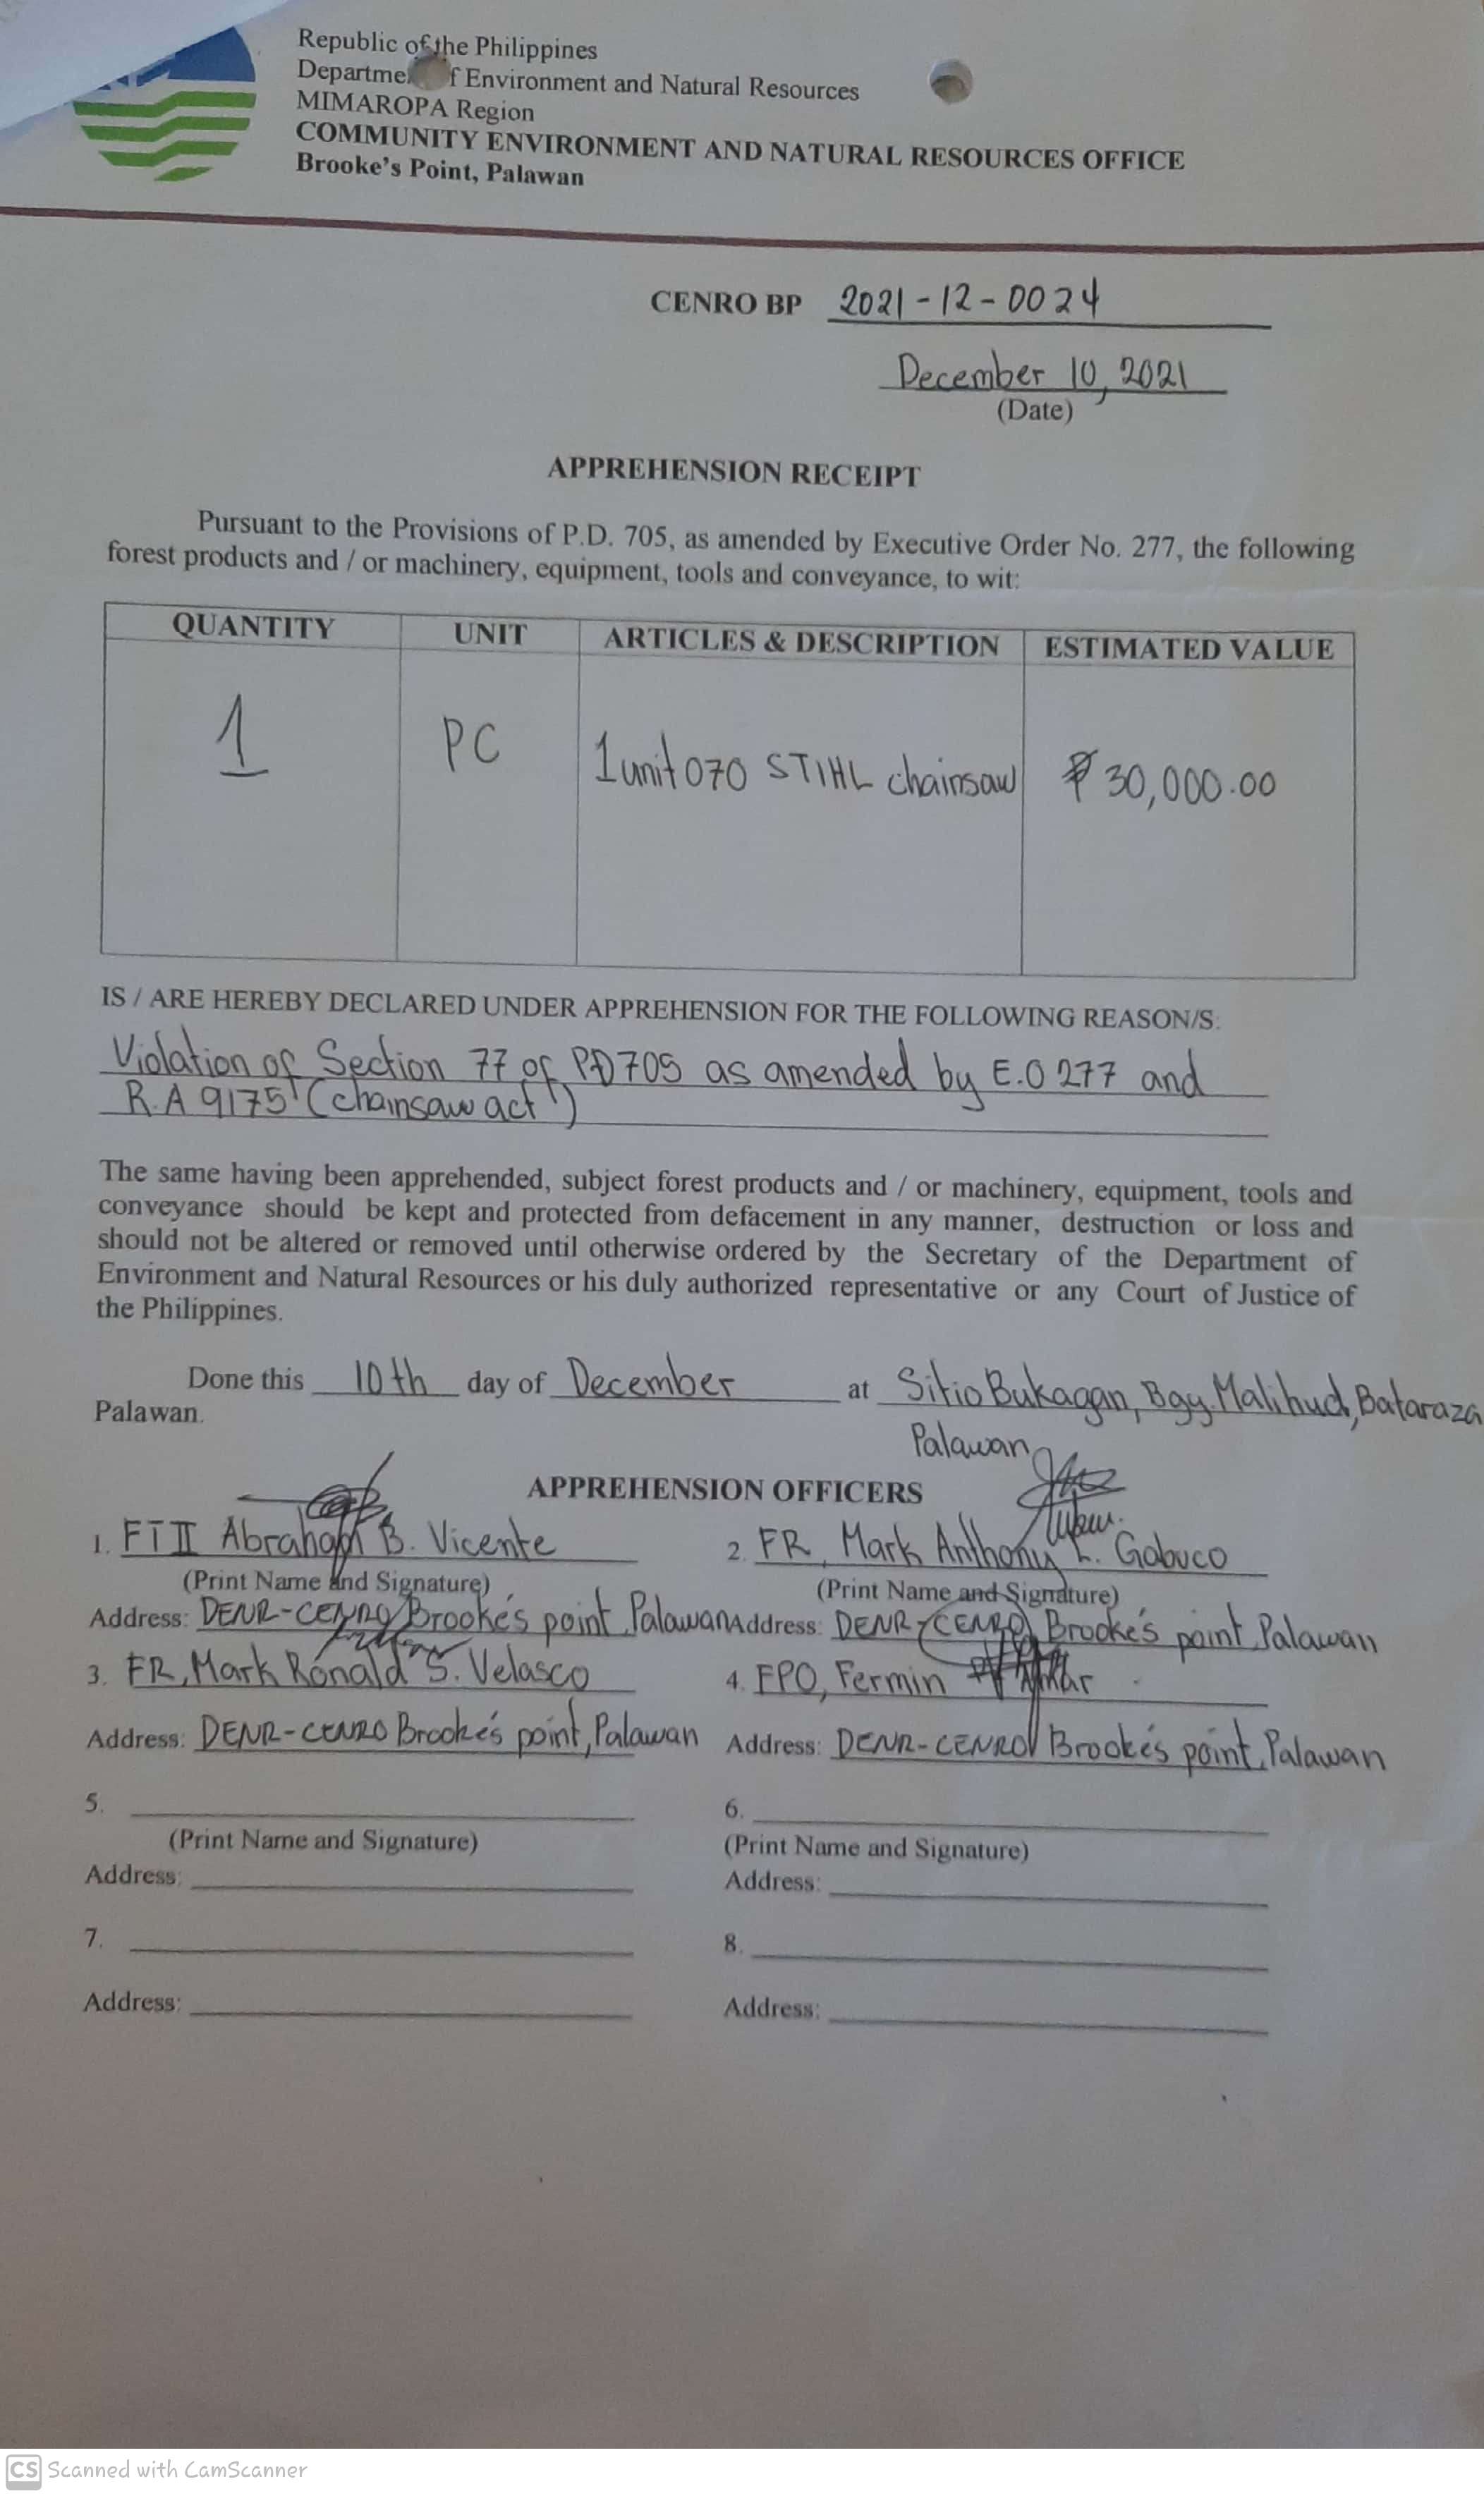 Republic of the Philippines
Departme f Environment and Natural Resources
MIMAROPA Region
COMMUNITY ENVIRONMENT AND NATURAL RESOURCES OFFICE
Brooke's Point, Palawan
CENRO BP 2021-12-0024
December 10, 2021
(Date)
APPREHENSION RECEIPT
Pursuant to the Provisions of P.D. 705, as amended by Executive Order No. 277, the following
forest products and / or machinery, equipment, tools and conveyance, to wit:
QUANTITY UNIT ARTICLES & DESCRIPTION ESTIMATED VALUE
1 PC 1 unit 070 STIHL chainsaw ₱ 30,000.00
IS / ARE HEREBY DECLARED UNDER APPREHENSION FOR THE FOLLOWING REASON/S:
Violation of Section 77 of PD 705 as amended by E.O 277 and
R.A 9175 (chainsaw act)
The same having been apprehended, subject forest products and / or machinery, equipment, tools and
conveyance should be kept and protected from defacement in any manner, destruction or loss and
should not be altered or removed until otherwise ordered by the Secretary of the Department of
Environment and Natural Resources or his duly authorized representative or any Court of Justice of
the Philippines.
Done this 10th day of December at Sitio Bukagan, Bgy. Malihud, Bataraza
Palawan.
Palawan
APPREHENSION OFFICERS
1. FT II Abraham B. Vicente 2. FR, Mark Anthony L. Gabuco
(Print Name and Signature) (Print Name and Signature)
Address: DENR-CENRO Brooke's point, Palawan Address: DENR-CENRO Brooke's point, Palawan
3. FR, Mark Ronald S. Velasco 4. FPO, Fermin
Address: DENR-CENRO Brooke's point, Palawan Address: DENR-CENRO Brooke's point, Palawan
5. 6.
(Print Name and Signature) (Print Name and Signature)
Address: Address:
7. 8.
Address: Address:
CS Scanned with CamScanner